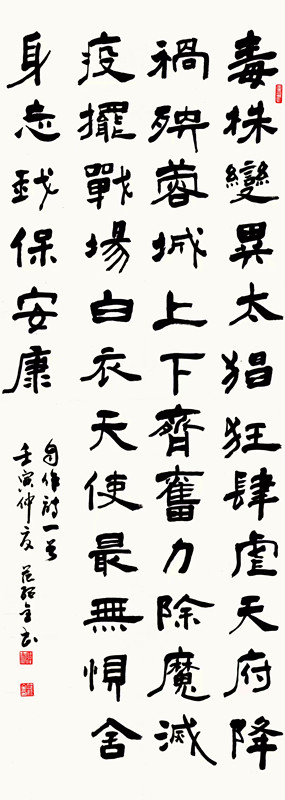 毒株變異太猖狂肆虐天府降
禍殃蓉城上下齊奮力除魔滅
疫擺戰場白衣天使最無惧舍
身忘我保安康
自作詩一首
壬寅仲夏 范經全书